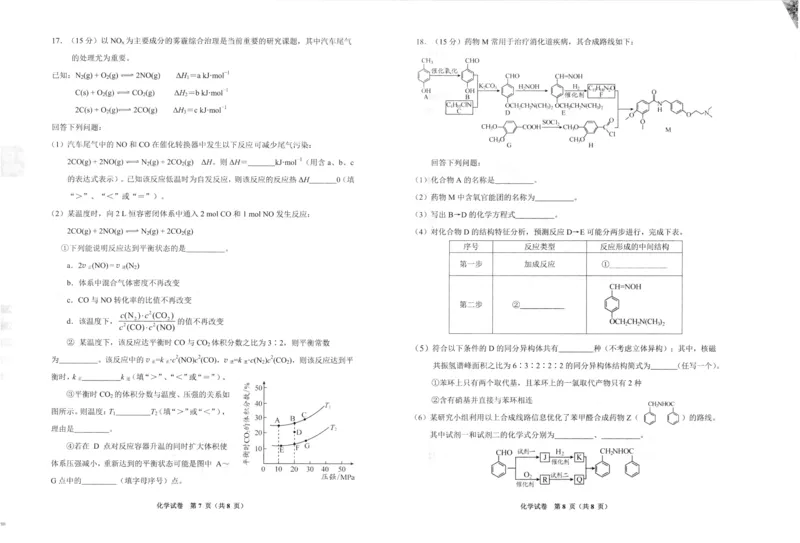 17. （15 分）以 NOx 为主要成分的雾霾综合治理是当前重要的研究课题，其中汽车尾气
的处理尤为重要。
已知：N2(g) + O2(g) ⇌ 2NO(g) ΔH1=a kJ·mol−1
C(s) + O2(g) ⇌ CO2(g) ΔH2=b kJ·mol−1
2C(s) + O2(g) ⇌ 2CO(g) ΔH3=c kJ·mol−1
回答下列问题：
（1）汽车尾气中的 NO 和 CO 在催化转换器中发生以下反应可减少尾气污染：
2CO(g) + 2NO(g) ⇌ N2(g) + 2CO2(g) ΔH。则 ΔH=______kJ·mol−1（用含 a、b、c
的代数式表示）。已知该反应低温时为自发反应，则该反应的反应热 ΔH______0（填
“>”、“<”或“=”）。
（2）某温度时，向 2 L 恒容密闭体系中通入 2 mol CO 和 1 mol NO 发生反应：
2CO(g) + 2NO(g) ⇌ N2(g) + 2CO2(g)
①下列能说明反应达到平衡状态的是________。
a．2v正(NO)=v逆(N2)
b．体系中混合气体密度不再改变
c．CO 与 NO 转化率的比值不再改变
d．该温度下，c(N2)·c2(CO2) / c2(CO)·c2(NO) 的值不再改变
② 某温度下，该反应达平衡时 CO 与 CO2 体积分数之比为 3∶2，则平衡常数
为________。该反应中的 v正=k正·c2(NO)c2(CO)，v逆=k逆·c(N2)c2(CO2)，则该反应达到平
衡时，k正________k逆（填“>”、“<”或“=”）。
③平衡时 CO2 的体积分数与温度、压强的关系如
图所示。则温度：T1________T2（填“>”或“<”），
理由是________。
④若在 D 点对反应容器升温的同时扩大体积使
体系压强减小，重新达到的平衡状态可能是图中 A～
G 点中的________（填字母序号）点。
平衡时CO2的体积分数/%
50
40
30
20
10
0 10 20 30 40 50
压强/MPa
A B C T1
D
E F G T2
化学试卷 第 7 页（共 8 页）
18. （15 分）药物 M 常用于治疗消化道疾病，其合成路线如下：
CH3 OH A
催化氧化
CHO OH B
K2CO3
C4H10ClN C
CHO OCH2CH2N(CH3)2 D
H2NOH
CH=NOH OCH2CH2N(CH3)2 E
H2 催化剂
F
CH3O CH3O COOH G
SOCl2
CH3O CH3O O C Cl H
M
回答下列问题：
（1）化合物 A 的名称是________。
（2）药物 M 中含氧官能团的名称为________。
（3）写出 B→D 的化学方程式________。
（4）对化合物 D 的结构特征分析，预测反应 D→E 可能分两步进行，完成下表。
序号 反应类型 反应形成的中间结构
第一步 加成反应 ①________
第二步 ②________ CH=NOH OCH2CH2N(CH3)2
（5）符合以下条件的 D 的同分异构体共有________种（不考虑立体异构）；其中，核磁
共振氢谱峰面积之比为 6∶3∶2∶2∶2 的同分异构体结构简式为______（任写一个）。
①苯环上只有两个取代基，且苯环上的一氯取代产物只有 2 种
②含有硝基并直接与苯环相连
（6）某研究小组利用以上合成线路信息优化了苯甲醛合成药物 Z（ CH2NHOC ）的路线。
其中试剂一和试剂二的化学式分别为________、________。
CHO 试剂一 J H2 催化剂 K CH2NHOC
O2 催化剂 R 试剂二 Q
化学试卷 第 8 页（共 8 页）